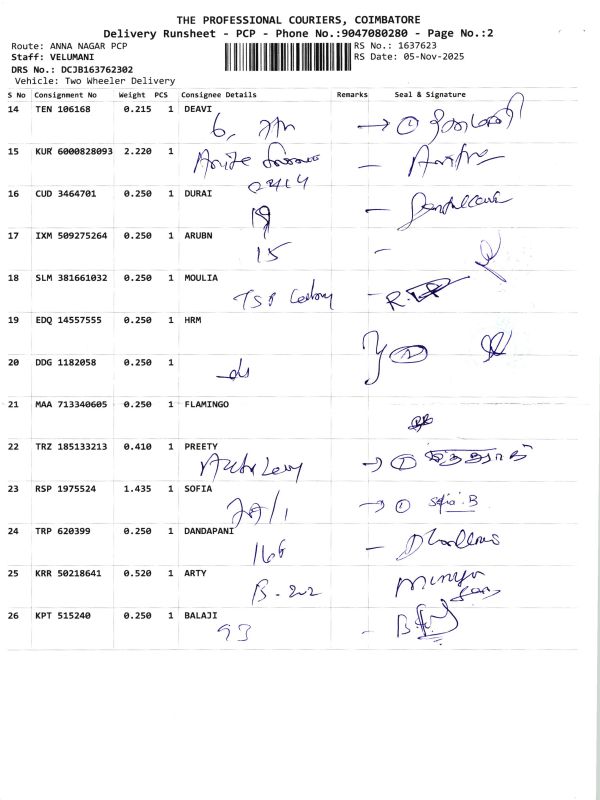 THE PROFESSIONAL COURIERS, COIMBATORE
Delivery Runsheet - PCP - Phone No.:9047080280 - Page No.:2
Route: ANNA NAGAR PCP RS No.: 1637623
Staff: VELUMANI RS Date: 05-Nov-2025
DRS No.: DCJB163762302
Vehicle: Two Wheeler Delivery
S No Consignment No Weight PCS Consignee Details Remarks Seal & Signature
14 TEN 106168 0.215 1 DEAVI
6,
15 KUR 6000828093 2.220 1
16 CUD 3464701 0.250 1 DURAI
19
17 IXM 509275264 0.250 1 ARUBN
15
18 SLM 381661032 0.250 1 MOULIA
19 EDQ 14557555 0.250 1 HRM
20 DDG 1182058 0.250 1
21 MAA 713340605 0.250 1 FLAMINGO
22 TRZ 185133213 0.410 1 PREETY
23 RSP 1975524 1.435 1 SOFIA
Sofia.B
24 TRP 620399 0.250 1 DANDAPANI
25 KRR 50218641 0.520 1 ARTY
B-202
26 KPT 515240 0.250 1 BALAJI
93